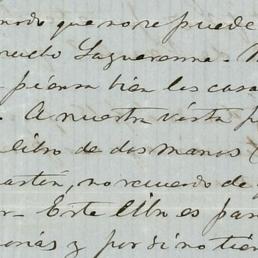 modo que no se puede
suelo Lagunanna. N
piensa bien las casa
. A nuestra vista p
libro de dos manos (
artón, no recuerdo de q
r- Este libro es par
onias y por si no tien